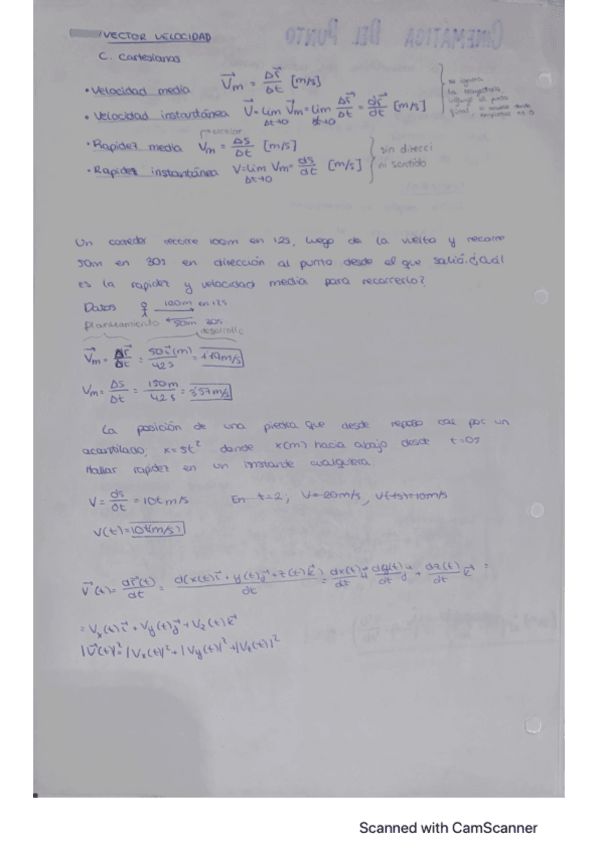 VECTOR VELOCIDAD
C. Cartesianas
• Velocidad media V⃗m = Δr⃗/Δt [m/s]
• Velocidad instantánea V⃗ = lim Δt→0 V⃗m = lim Δt→0 Δr⃗/Δt = dr⃗/dt [m/s]
• Rapidez media Vm = Δs/Δt [m/s]
• Rapidez instantánea V = lim Δt→0 Vm = ds/dt [m/s]
sin direcci
ni sentido
Un corredor recorre 100m en 12s, luego da la vuelta y recorre
50m en 30s en dirección al punto desde el que salió. ¿Cuál
es la rapidez y velocidad media para recorrerlo?
Datos 100m en 12s
Planteamiento 50m 30s
desarrollo
V⃗m = Δr⃗/Δt = 50i⃗(m)/42s = 1'19m/s
Vm = Δs/Δt = 150m/42s = 3'57m/s
La posición de una piedra que desde reposo cae por un
acantilado; x=5t² donde x(m) hacia abajo desde t=0s
Hallar rapidez en un instante cualquiera.
V = ds/dt = 10t m/s En t=2; V=20m/s,
V(t)=10t(m/s)
V⃗(t) = dr⃗(t)/dt = d(x(t)i⃗ + y(t)j⃗ + z(t)k⃗)/dt = dx(t)/dt i⃗ + dy(t)/dt j⃗ + dz(t)/dt k⃗ =
= Vx(t)i⃗ + Vy(t)j⃗ + Vz(t)k⃗
|V⃗(t)|² = |Vx(t)|² + |Vy(t)|² + |Vz(t)|²
Scanned with CamScanner